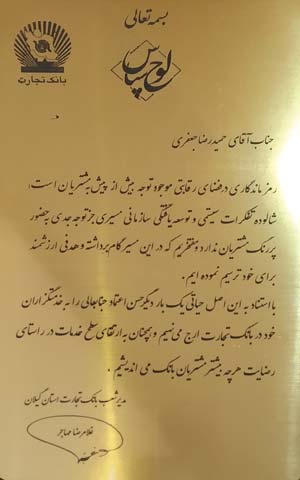 بسمه تعالی
لوح سپاس
بانک تجارت
جناب آقای حمیدرضا جعفری
رمز ماندگاری در فضای رقابتی موجود توجه بیش از پیش به مشتریان است؛
شالوده تفکرات سیستمی و توسعه یافتگی سازمانی مسیری جز توجه جدی به حضور
پررنگ مشتریان ندارد و مفتخریم که در این مسیر گام برداشته و هدفی ارزشمند
برای خود ترسیم نموده ایم.
با استناد به این اصل حیاتی یک بار دیگر حسن اعتماد جنابعالی را به خدمتگزاران
خود در بانک تجارت ارج می نهیم و همچنان به ارتقای سطح خدمات در راستای
رضایت هرچه بیشتر مشتریان بانک می اندیشیم.
مدیر شعب بانک تجارت استان گیلان
غلامرضا مهاجر